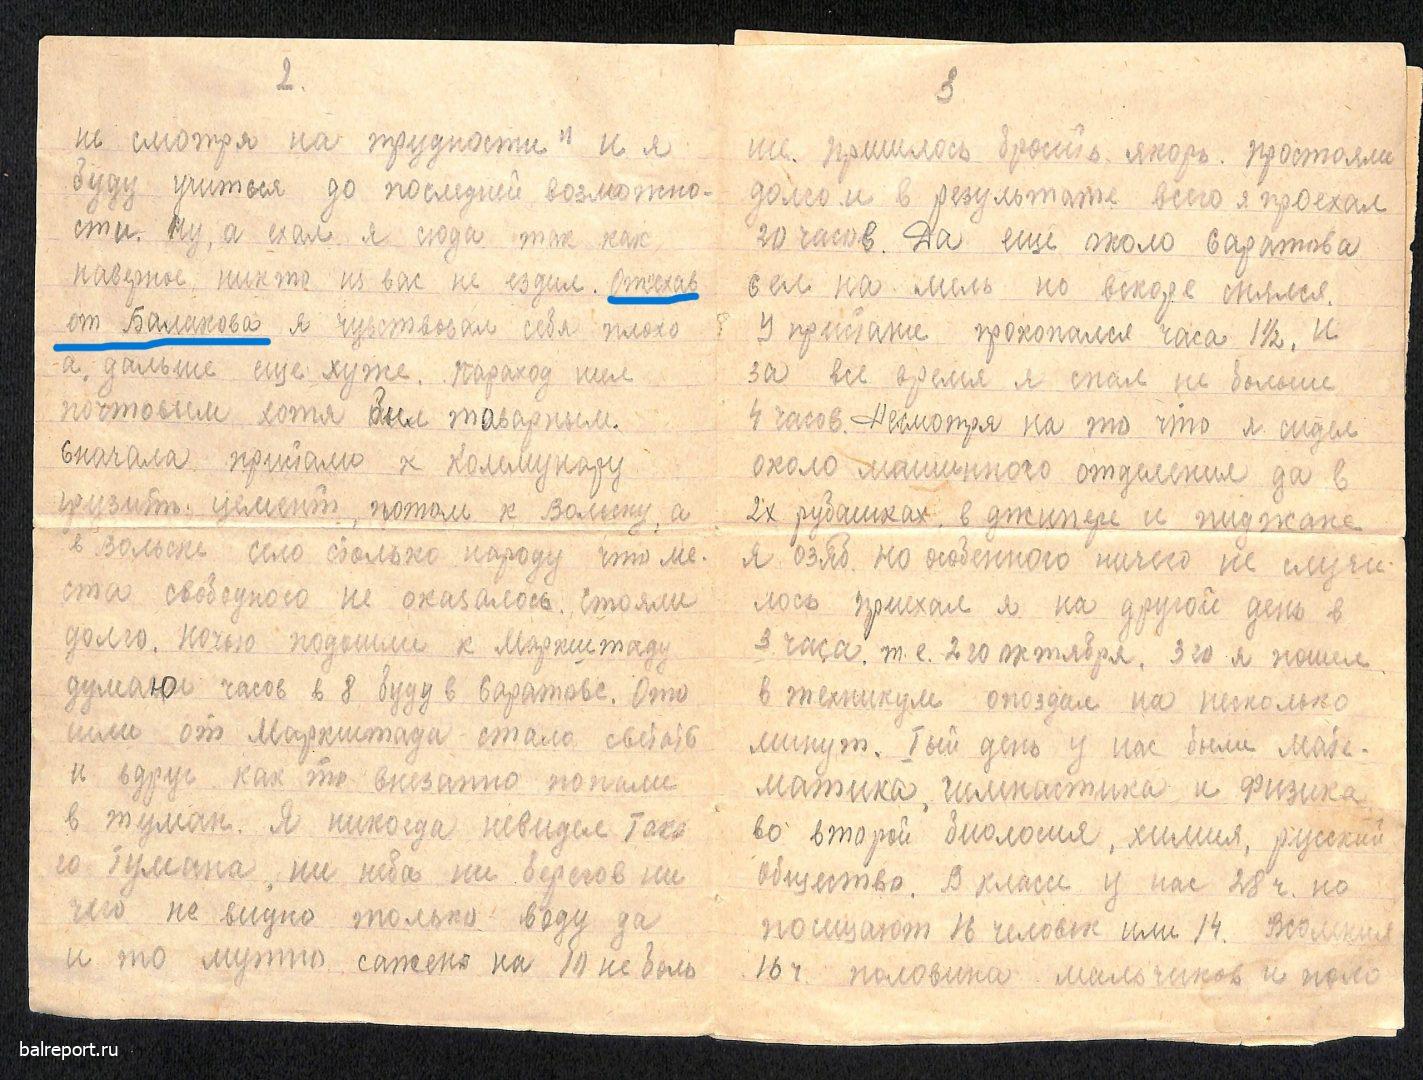 2.
не смотря на трудности" и я
буду учиться до последней возможно-
сти. Ну, а ехал я сюда так как
наверное никто из вас не ездил. Отъехав
от Балакова я чувствовал себя плохо
а, дальше еще хуже. Параход шел
почтовым хотя был товарным.
Сначала пристали к Коммунару
грузить цемент, потом к Вольску, а
в Вольске село столько народу что ме-
ста свободного не оказалось. Стояли
долго. Ночью подошли к Марксштаду
думаю часов в 8 буду в Саратове. Ото
шли от Марксштада стало светать
и вдруг как то внезапно попали
в туман. Я никогда невидел тако
го тумана, ни неба ни берегов ни
чего не видно только воду да
и то мутно сажено на 10 не боль
3
ше. Пришлось бросить якорь. Простояли
долго и в результате всего я проехал
20 часов. Да еще около Саратова
сел на мель но вскоре снялся.
У пристане прокопался часа 1½. И
за все время я спал не больше
4 часов. Несмотря на то что я сидел
около машинного отделения да в
2х рубашках, в джипере и пиджаке
я озяб. Но особенного ничего не случи-
лось приехал я на другой день в
3 часа. т.е. 2го октября. 3го я пошел
в техникум опоздал на несколько
минут. 1ый день у нас были мате-
матика, гимнастика и Физика
во второй биология, химия, русский
общество. В классе у нас 28 ч. но
посищают 16 человек или 14.
16 ч. половина мальчиков и поло
balreport.ru